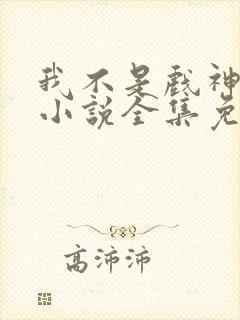 我不是戏神
小说全集免
高沛沛